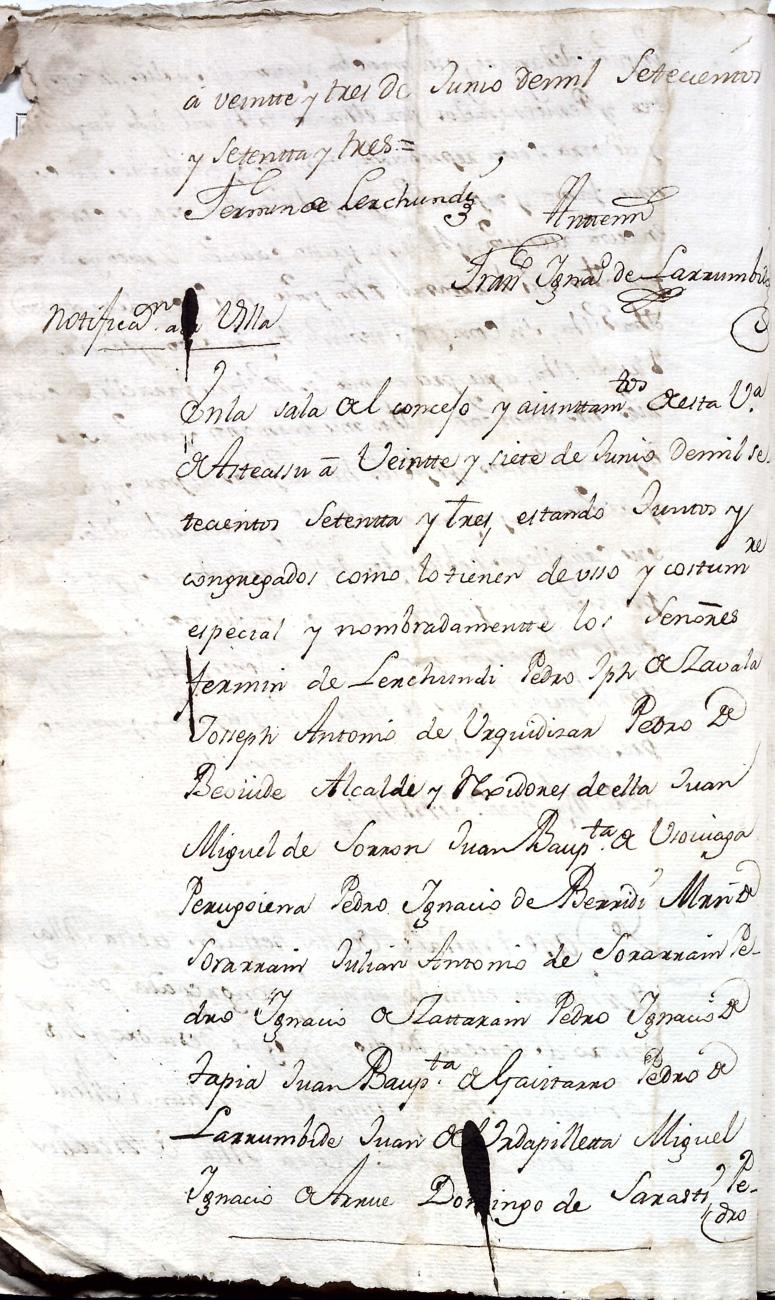 a veintte y tres de Junio demil Setecientos
y Setentta y tres =
Fermin de Lerchundi
Antemi
Fran.co Igna.o de Larrumbide
Notificaon. a la Villa
Enla sala del concejo y aiunttam.tos desta V.a
de Asteassu â Veintte y siete de Junio demil se-
tecientos Setentta y tres, estando Juntos y
congregados como lo tienen de usso y costumre
especial y nombradamentte los Señores
fermin de Lerchundi Pedro Jph de Zavala
Josseph Antonio de Urquidizar Pedro de
Beoiide Alcalde y Rexidores de ella Juan
Miguel de Sorron Juan Baup.ta de Usoviaga
Perugoiena Pedro Ignacio de Berridi Mrn de
Sorarrain Julian Antonio de Sorarrain Pe-
dro Ignacio de Zattarain Pedro Ignacio de
tapia Juan Baup.ta de Gaiztarro Pedro de
Larrumbide Juan de Urdapilletta Miguel
Ignacio de Arrue Domingo de Sarasti Pe-
dro